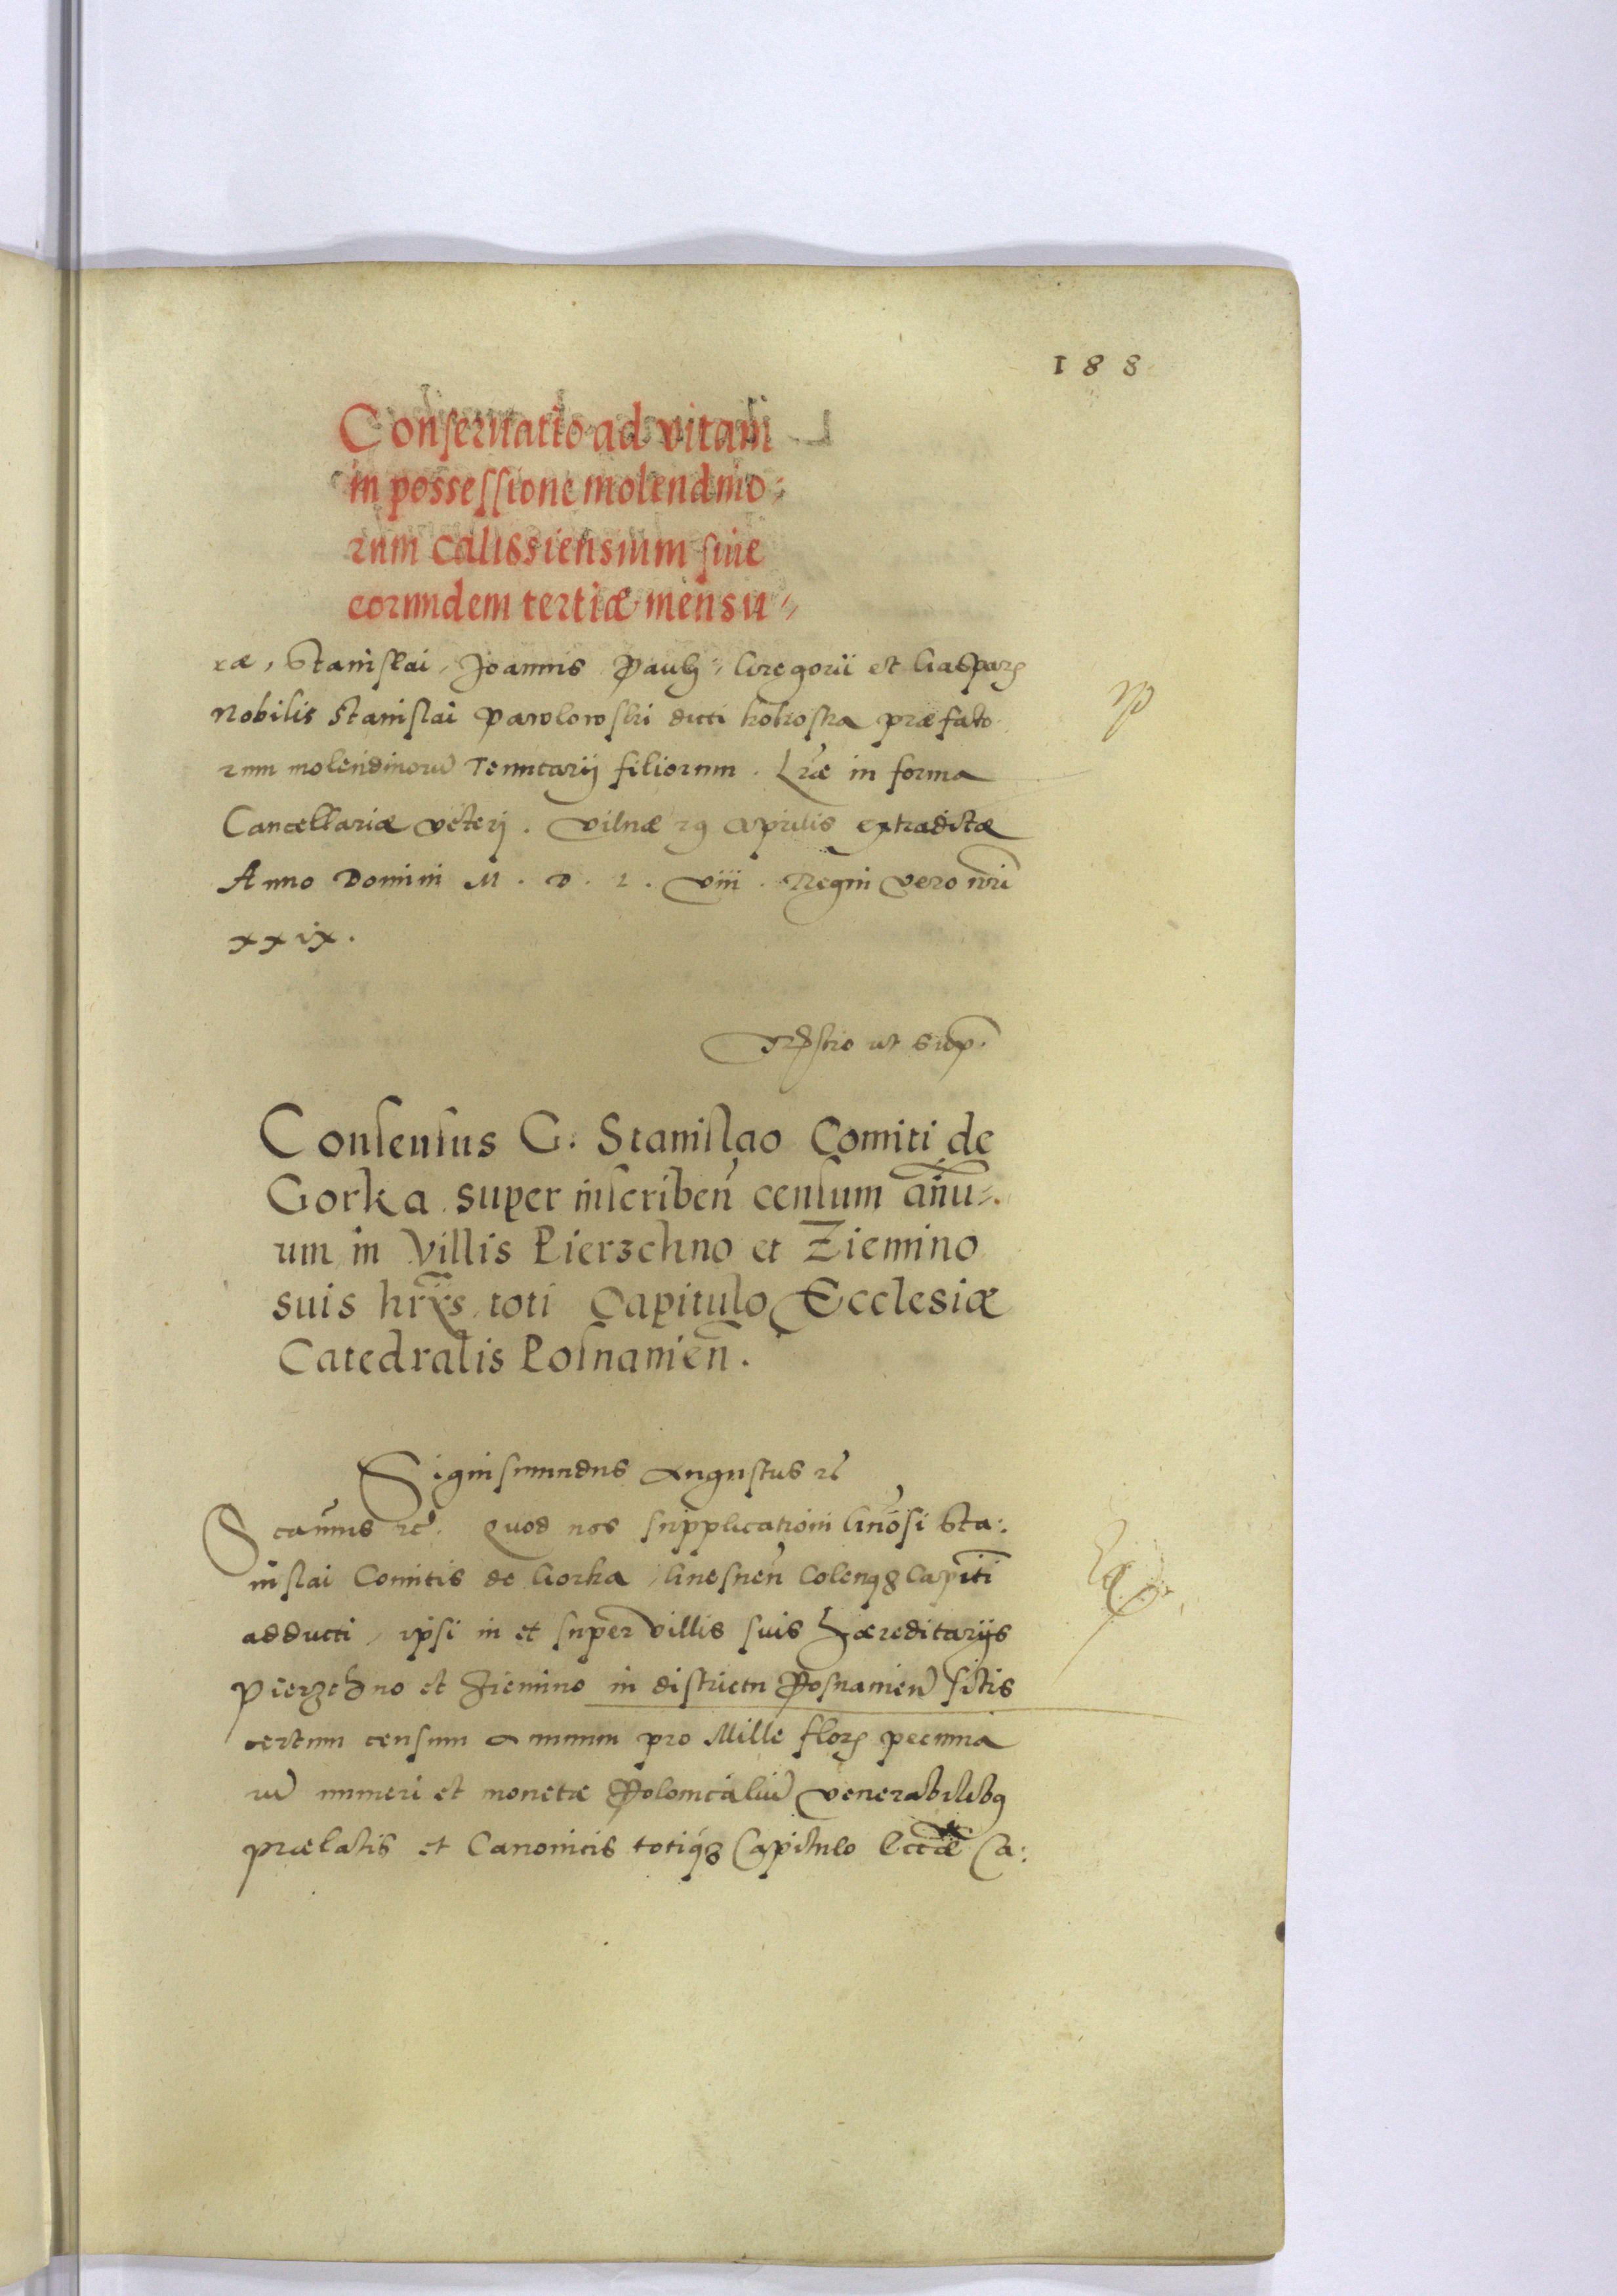 188
Conseruatio ad vitam
in possessione molendino=
rum calissiensium siue
eorumdem tertiæ mensu=
ræ, Stanislai, Joannis Pauli, Gregorii et Caspar
Nobilis Stanislai Pawlowski dicti Kokoska præfato
rum molendinorū Tenutarij filiorum. Lræ in forma
Cancellariæ veteri. Vilnæ 29 Aprilis extraditæ
Anno Domini M. D. L. viii. Regni vero nri
xxix.
ut sup.
Consensus G. Stanislao Comiti de
Gorka super inscriben censum annu=
um in Villis Pierzchno et Ziemino
suis hrijs toti Capitulo Ecclesiæ
Catedralis Posnanien.
Sigismundus Augustus rc
S cammus rc. Quod nos supplicationi Gnosi Sta:
nislai Comitis de Gorka, Gnesnen Colenq Capiti
adducti, ipsi in et super villis suis hæreditarijs
Pierzchno et Ziemino in districtu Posnanien sitis
certum censum annuum pro Mille flor pecunia
rū numeri et monetæ Polonicaliū venerabilibq
prælatis et Canonicis totiq Capitulo Ecctæ Ca: